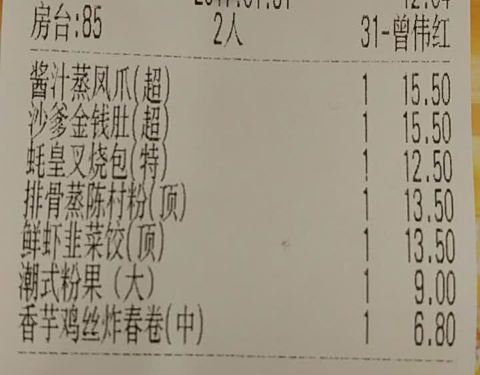 房台:85 2人 31-曾伟红
酱汁蒸凤爪(超) 1 15.50
沙爹金钱肚(超) 1 15.50
蚝皇叉烧包(特) 1 12.50
排骨蒸陈村粉(顶) 1 13.50
鲜虾韭菜饺(顶) 1 13.50
潮式粉果（大） 1 9.00
香芋鸡丝炸春卷(中) 1 6.80